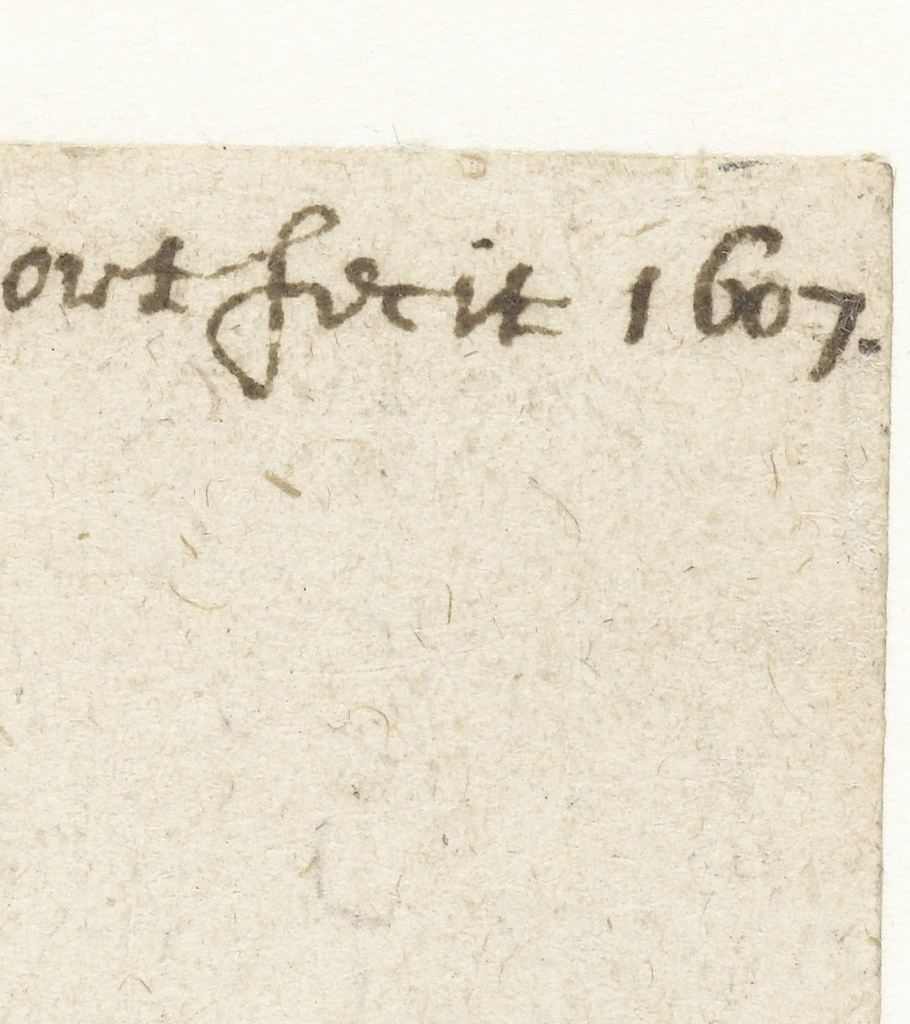 ort fecit 1607.